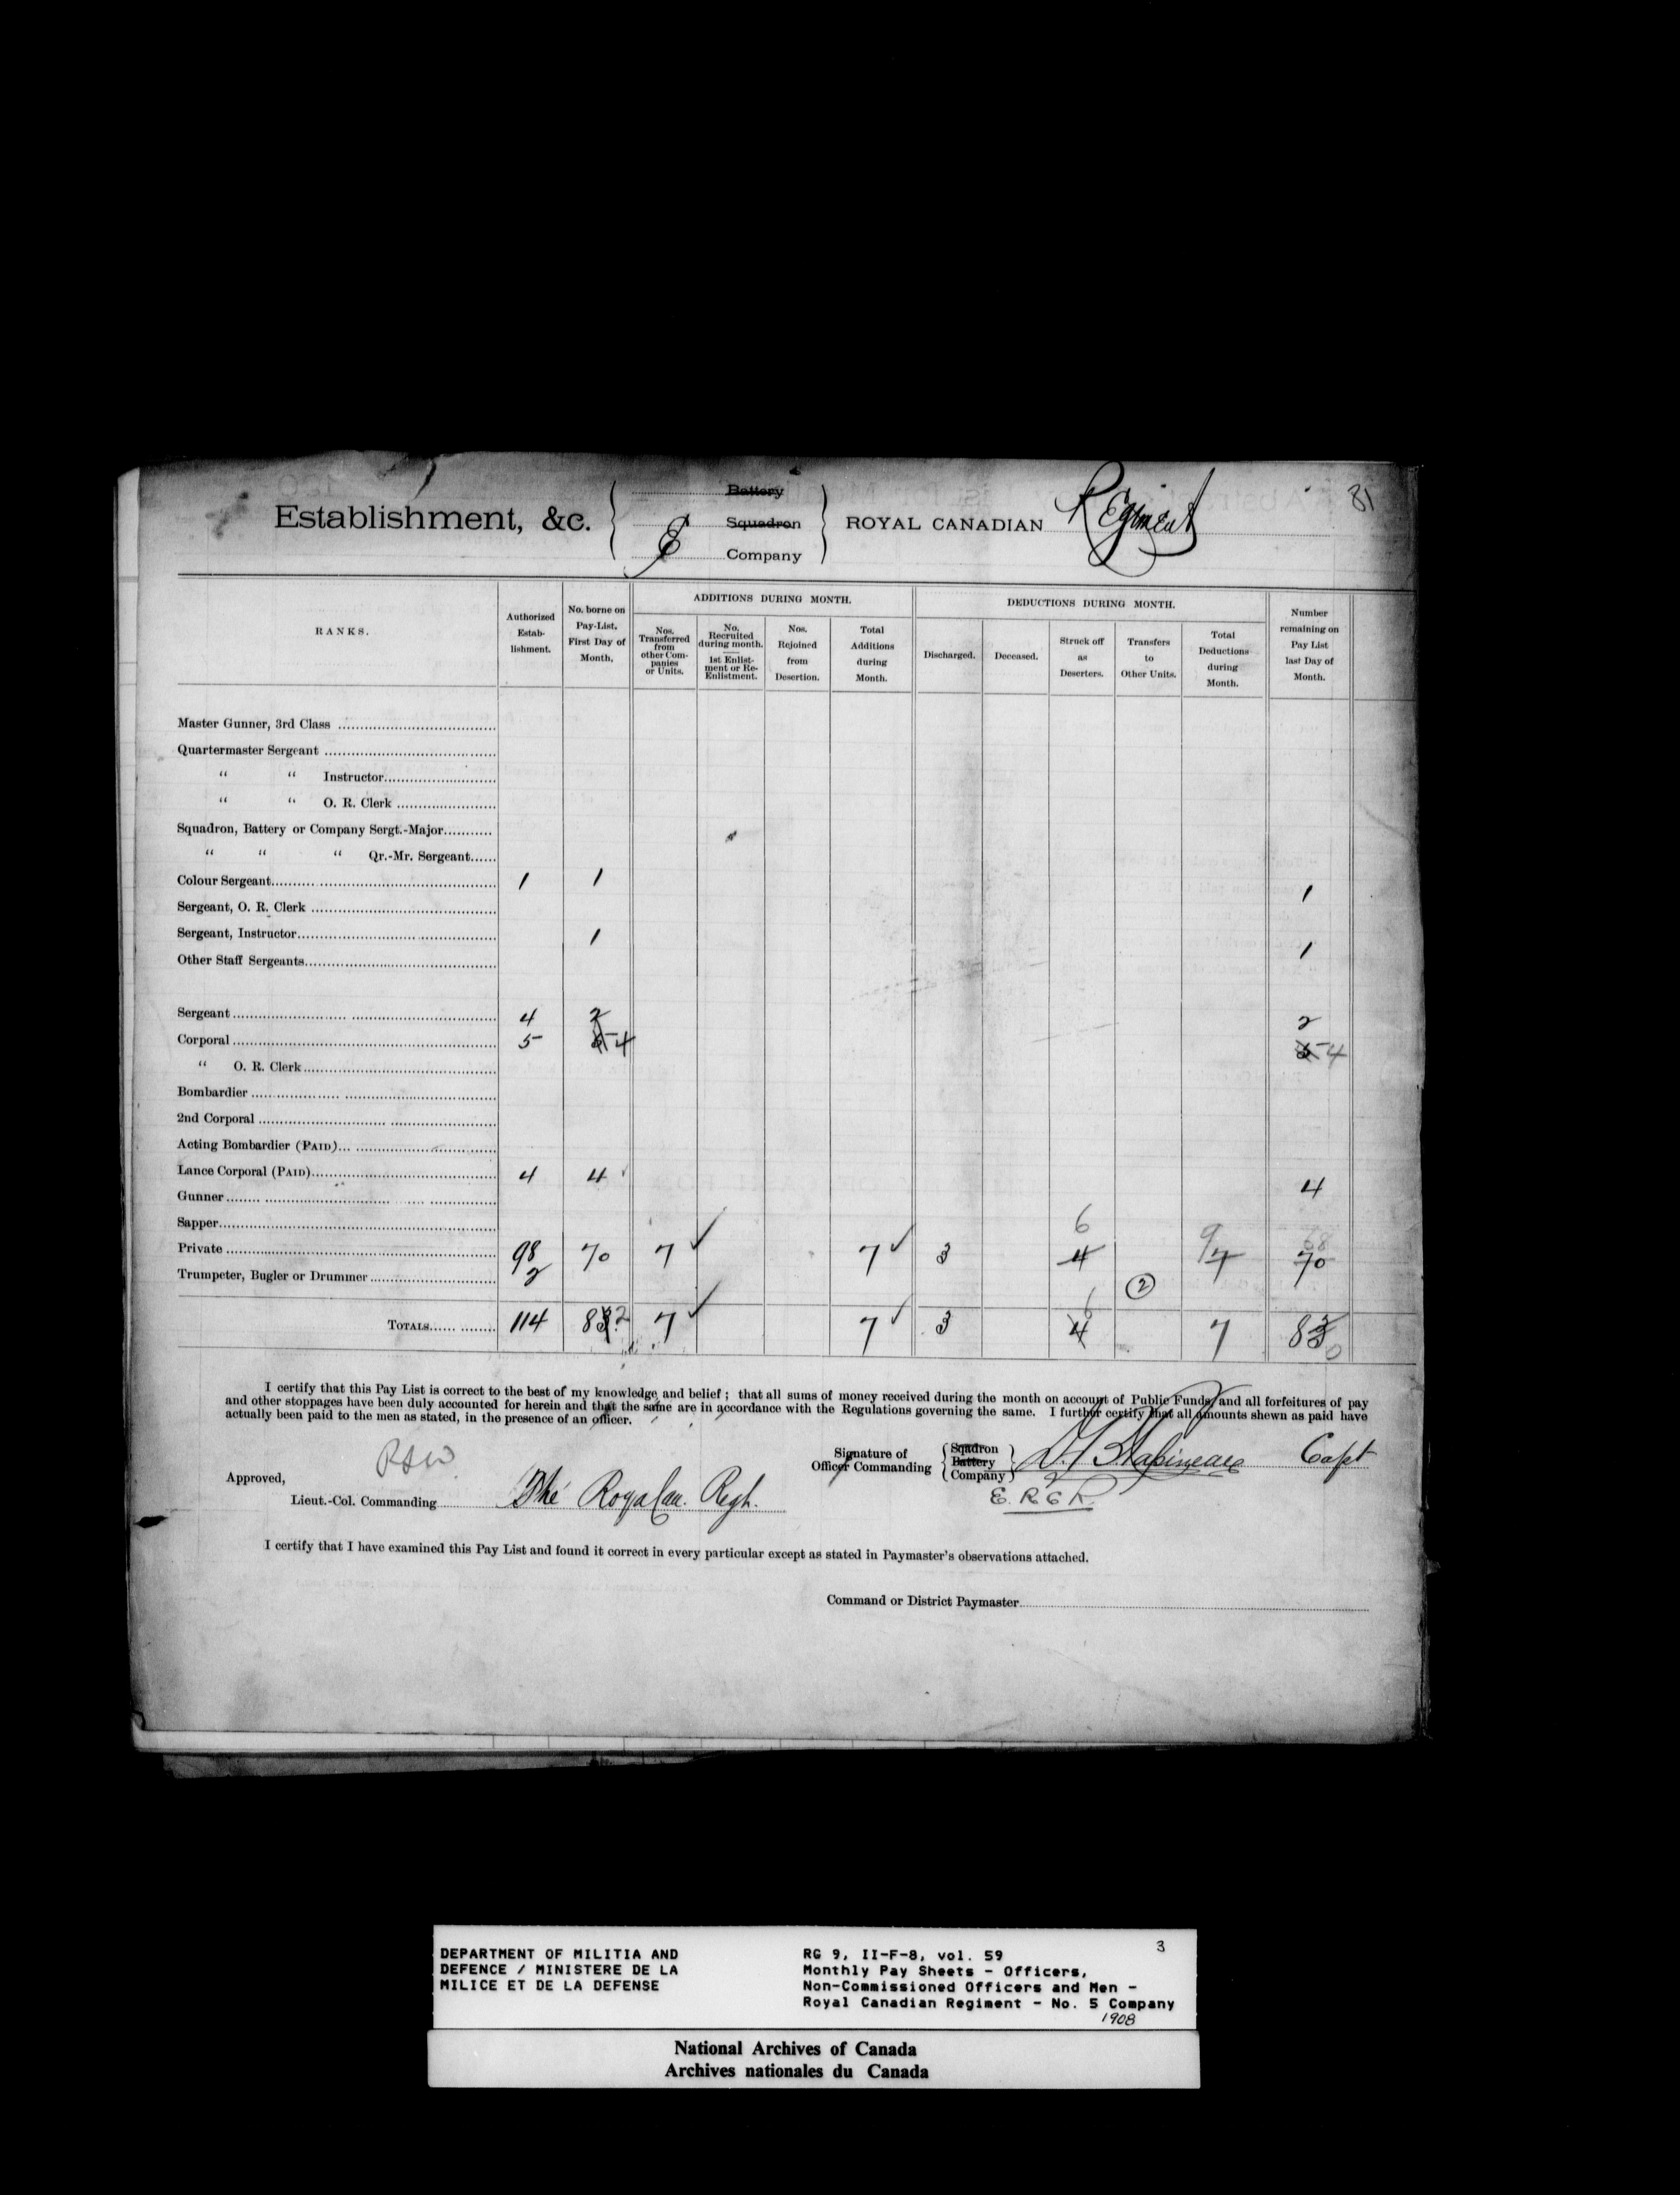 81
Establishment, &c. { Battery
Squadron
E Company } ROYAL CANADIAN Regiment
RANKS.
Authorized Establishment.
No. borne on Pay-List, First Day of Month.
ADDITIONS DURING MONTH.
Nos. Transferred from other Companies or Units.
No. Recruited during month. 1st Enlistment or Re-Enlistment.
Nos. Rejoined from Desertion.
Total Additions during Month.
DEDUCTIONS DURING MONTH.
Discharged.
Deceased.
Struck off as Deserters.
Transfers to Other Units.
Total Deductions during Month.
Number remaining on Pay List last Day of Month.
Master Gunner, 3rd Class
Quartermaster Sergeant
" " Instructor
" " O. R. Clerk
Squadron, Battery or Company Sergt.-Major
" " " Qr.-Mr. Sergeant
Colour Sergeant 1 1 1
Sergeant, O. R. Clerk
Sergeant, Instructor 1 1
Other Staff Sergeants
Sergeant 4 2 2
Corporal 5 5 4 5 4
" O. R. Clerk
Bombardier
2nd Corporal
Acting Bombardier (PAID)
Lance Corporal (PAID) 4 4 4
Gunner
Sapper 6
Private 98 70 7 7 3 4 9 7 68 70
Trumpeter, Bugler or Drummer 2 2
TOTALS 114 83 2 7 7 3 6 4 7 83 0
I certify that this Pay List is correct to the best of my knowledge and belief; that all sums of money received during the month on account of Public Funds, and all forfeitures of pay
and other stoppages have been duly accounted for herein and that the same are in accordance with the Regulations governing the same. I further certify that all amounts shewn as paid have
actually been paid to the men as stated, in the presence of an officer.
Signature of Officer Commanding { Sqadron
Battery
Company } Capt
E. R C R.
Approved,
Lieut.-Col. Commanding The Royal Can. Regt.
I certify that I have examined this Pay List and found it correct in every particular except as stated in Paymaster's observations attached.
Command or District Paymaster
DEPARTMENT OF MILITIA AND
DEFENCE / MINISTERE DE LA
MILICE ET DE LA DEFENSE
3
RG 9, II-F-8, vol. 59
Monthly Pay Sheets - Officers,
Non-Commissioned Officers and Men -
Royal Canadian Regiment - No. 5 Company
1908
National Archives of Canada
Archives nationales du Canada